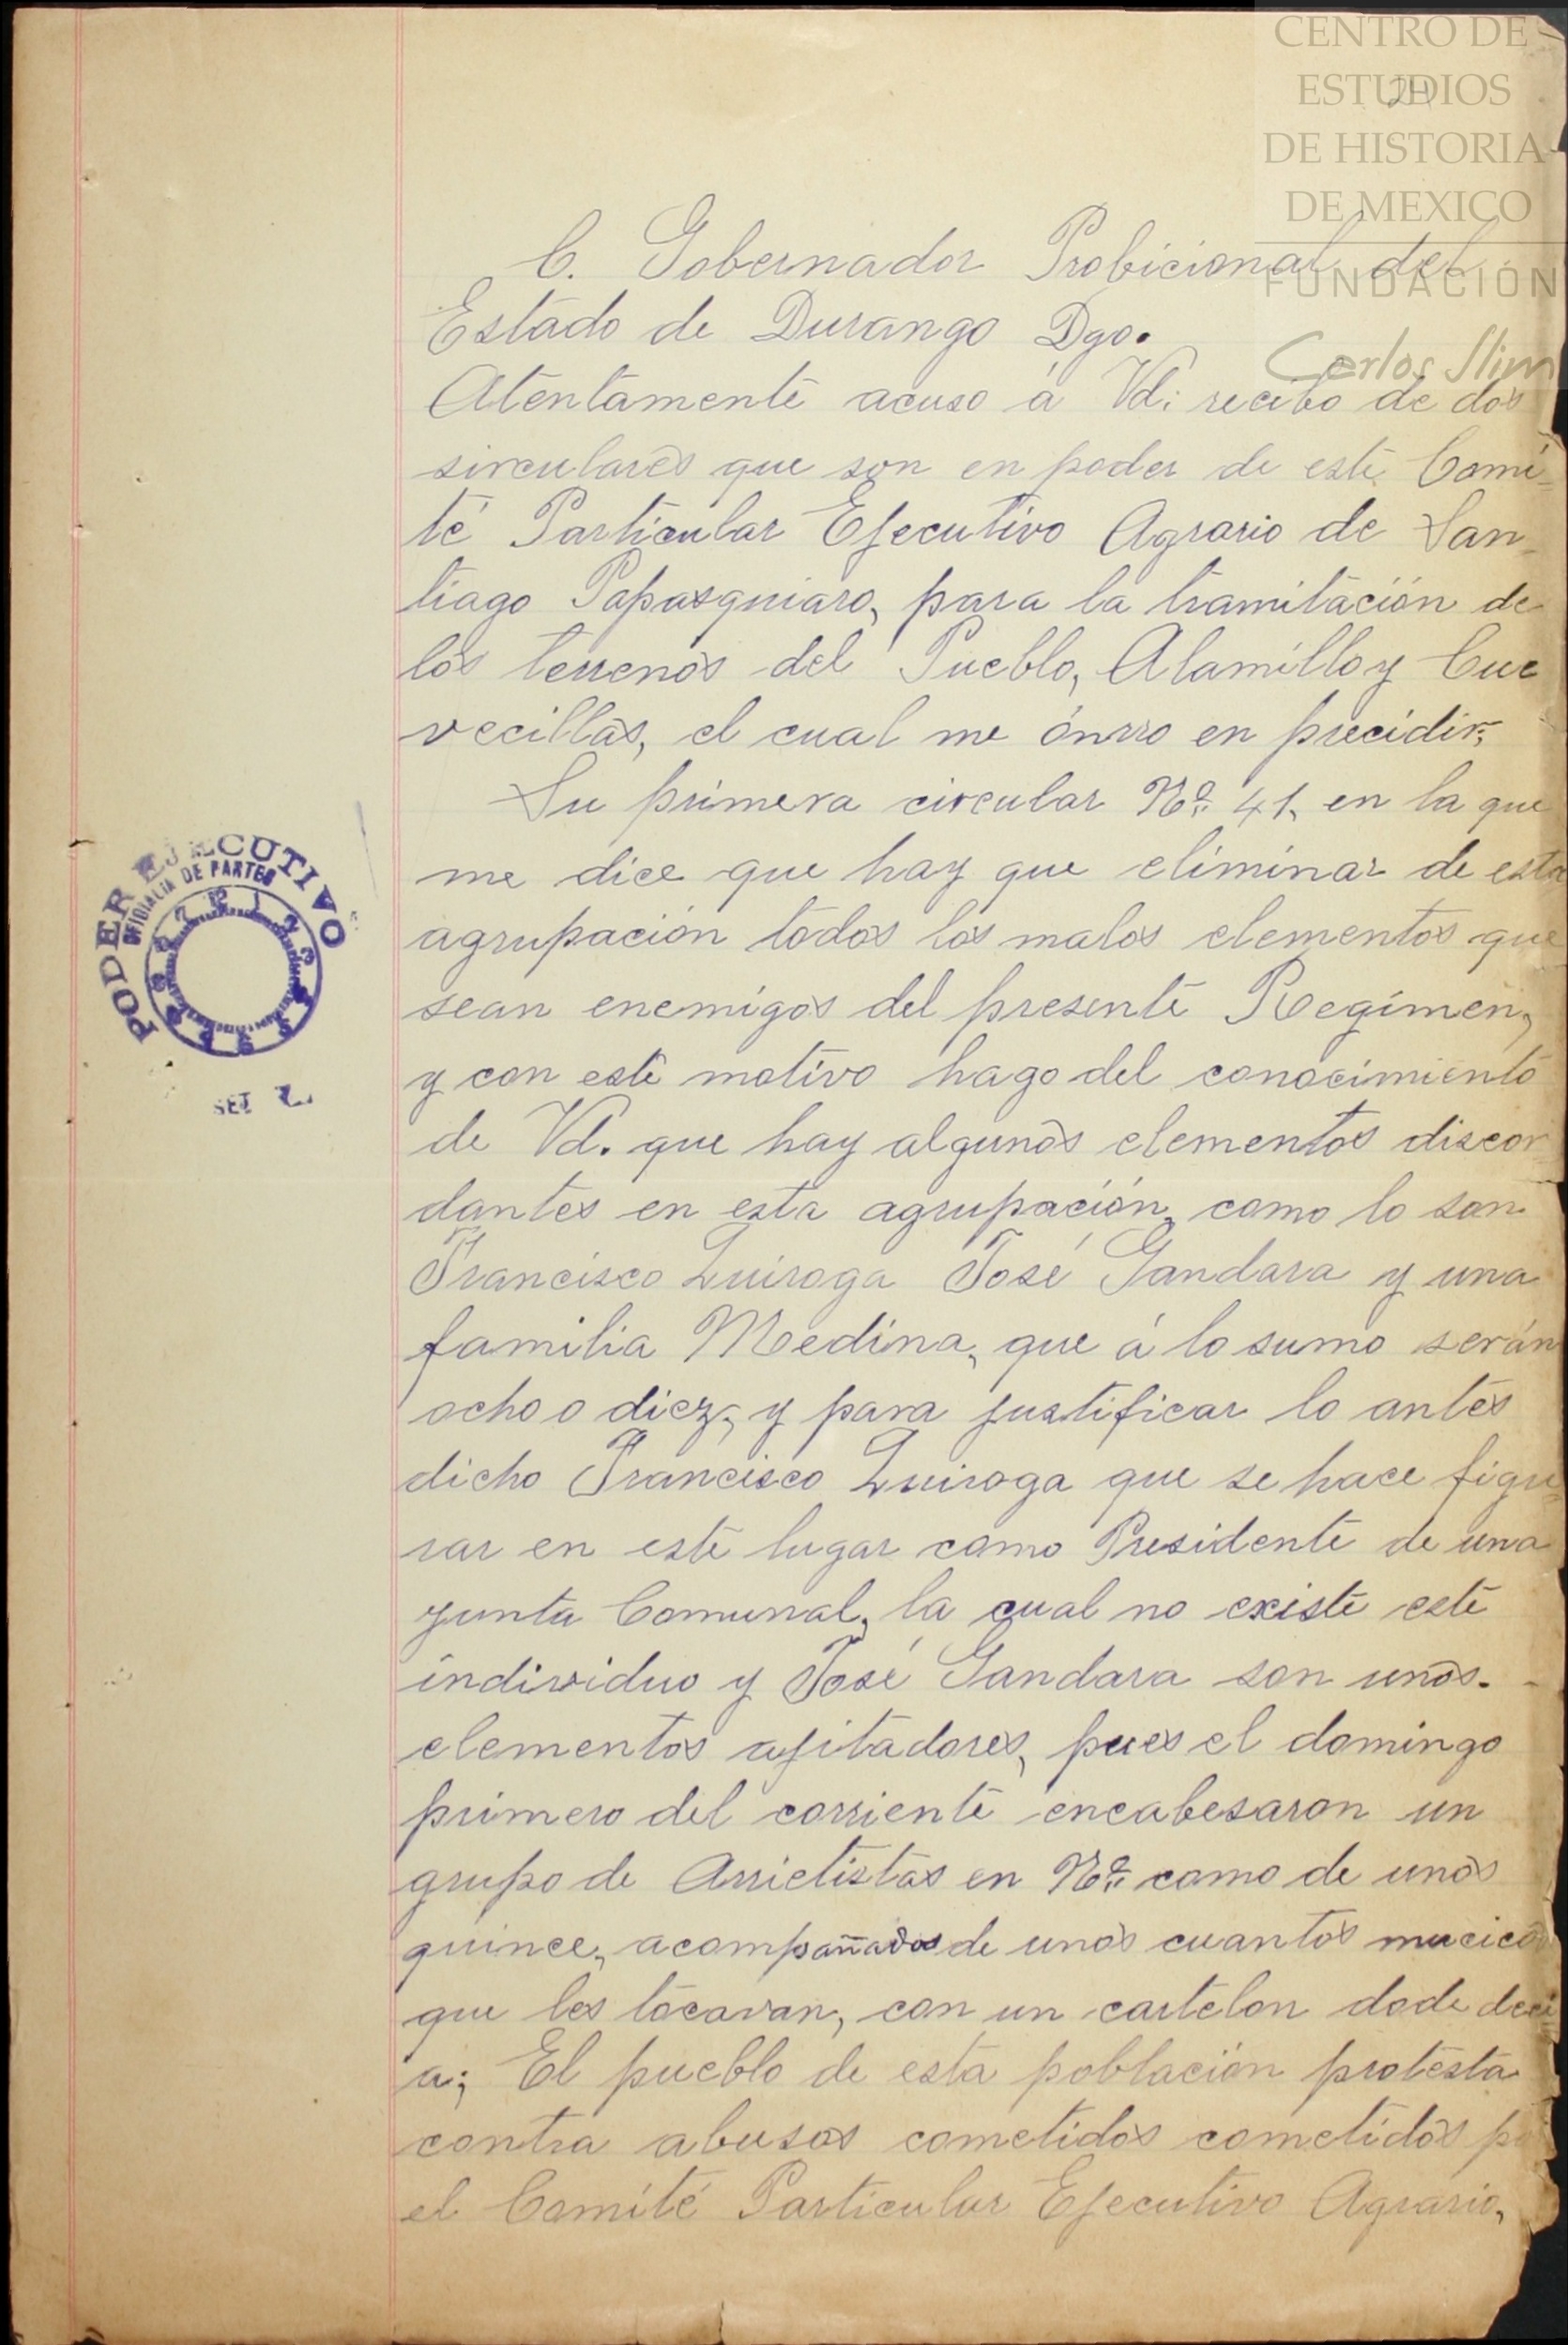 CENTRO DE
ESTUDIOS
DE HISTORIA
DE MEXICO
FUNDACIÓN
Carlos Slim
C. Gobernador Probicional del
Estado de Durango Dgo.
Atentamente acuso á Vd: recibo de dos
sirculares que son en poder de este Comi-
té Particular Ejecutivo Agrario de San-
tiago Papasquiaro, para la tramitación de
los terrenos del Pueblo, Alamillo y Cue
vecillas, el cual me ónrro en precidir;
Su primera circular Nº 41, en la que
me dice que hay que eliminar de esta
agrupación todos los malos elementos que
sean enemigos del presente Regimen,
y con este motivo hago del conocimiento
de Vd. que hay algunos elementos discor-
dantes en esta agrupación, como lo son
Francisco Quiroga José Gandara y una
familia Medina, que á lo sumo serán
ocho o diez, y para justificar lo antes
dicho Francisco Quiroga que se hace figu-
rar en este lugar como Presidente de una
junta Comunal, la cual no existe este
individuo y José Gandara son unos.
elementos ajitadores, pues el domingo
primero del corriente encabesaron un
grupo de Arrietistas en Nº como de unos
quince, acompañados de unos cuantos mucicos
que les tocavan, con un cartelon dode deci
a; El pueblo de esta población protesta
contra abusos cometidos cometidos
el Comité Particular Ejecutivo Agrario,
PODER EJECUTIVO
OFICIALIA DE PARTES
SET